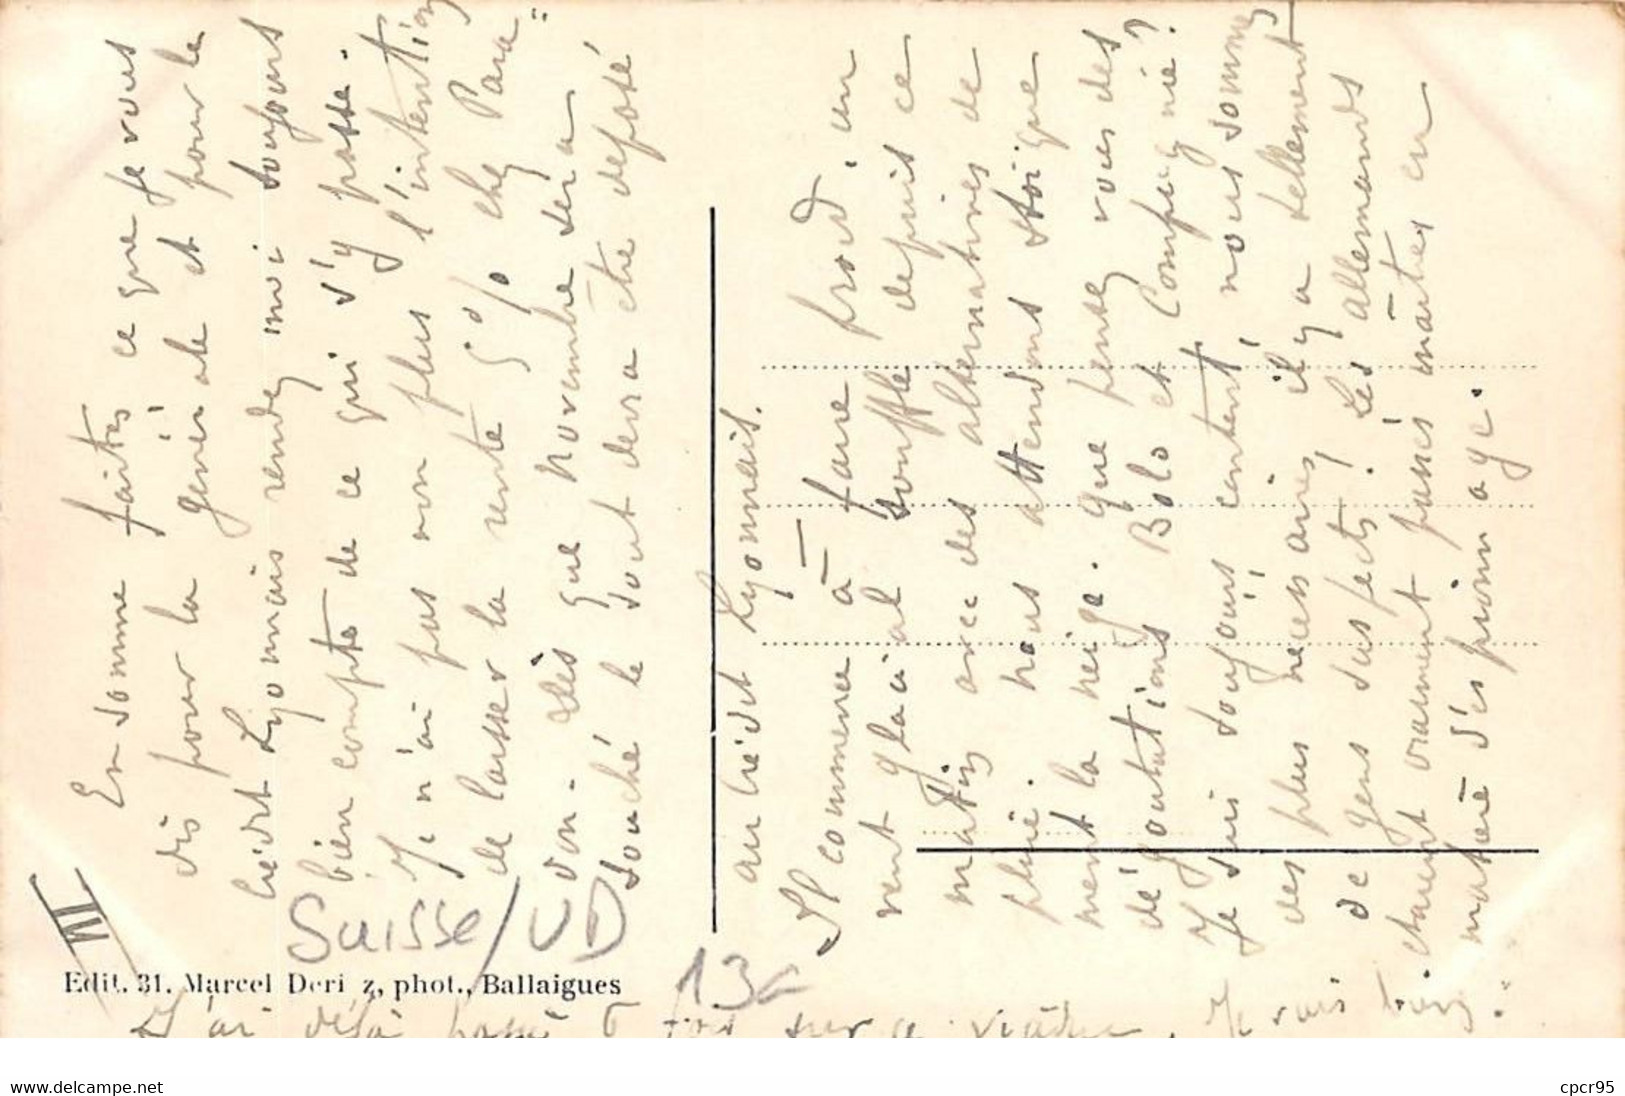 En somme faites ce que je vous
dis pour la générale et pour le
Crédit Lyonnais rendez moi toujours
bien compte de ce qui s'y passe.
Je n'ai pas non plus l'intention
de laisser la rente 5% chez Para"
don. Dès que Novembre sera
touché le tout devra être déposé
au Crédit Lyonnais.
Il commence à faire froid, un
vent glacial souffle depuis ce
matin, avec des alternatives de
pluie. nous attendons stoique
ment la neige. que pensez vous des
dégoutations Bolo et Compagnie?
Je suis toujours content, nous sommes
des plus nécessaires il y a tellement
de gens suspects! Les allemands
étaient vraiment passés maîtres en
matière d'espionnage.
VII
Suisse/VD
13a
Edit. 31. Marcel Deri z, phot., Ballaigues
J'ai déjà passé 6 fois sur ce viaduc. Je vais
www.delcampe.net
cpcr95